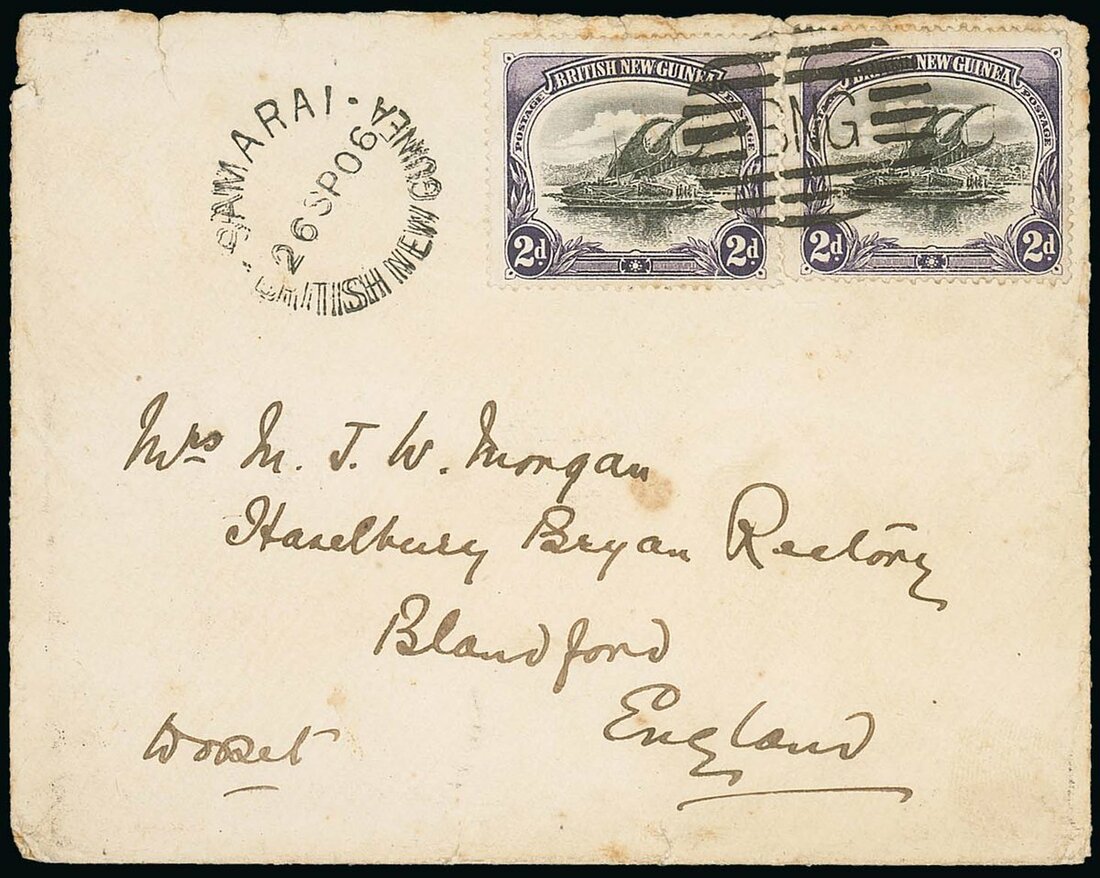 BRITISH NEW GUINEA
POSTAGE POSTAGE
2d. 2d.
BRITISH NEW GUINEA
POSTAGE POSTAGE
2d. 2d.
BNG
SAMARAI
26 SP 06
BRITISH NEW GUINEA
Mrs M. J. W. Morgan
Haselbury Bryan Rectory
Blandford
England
Dorset